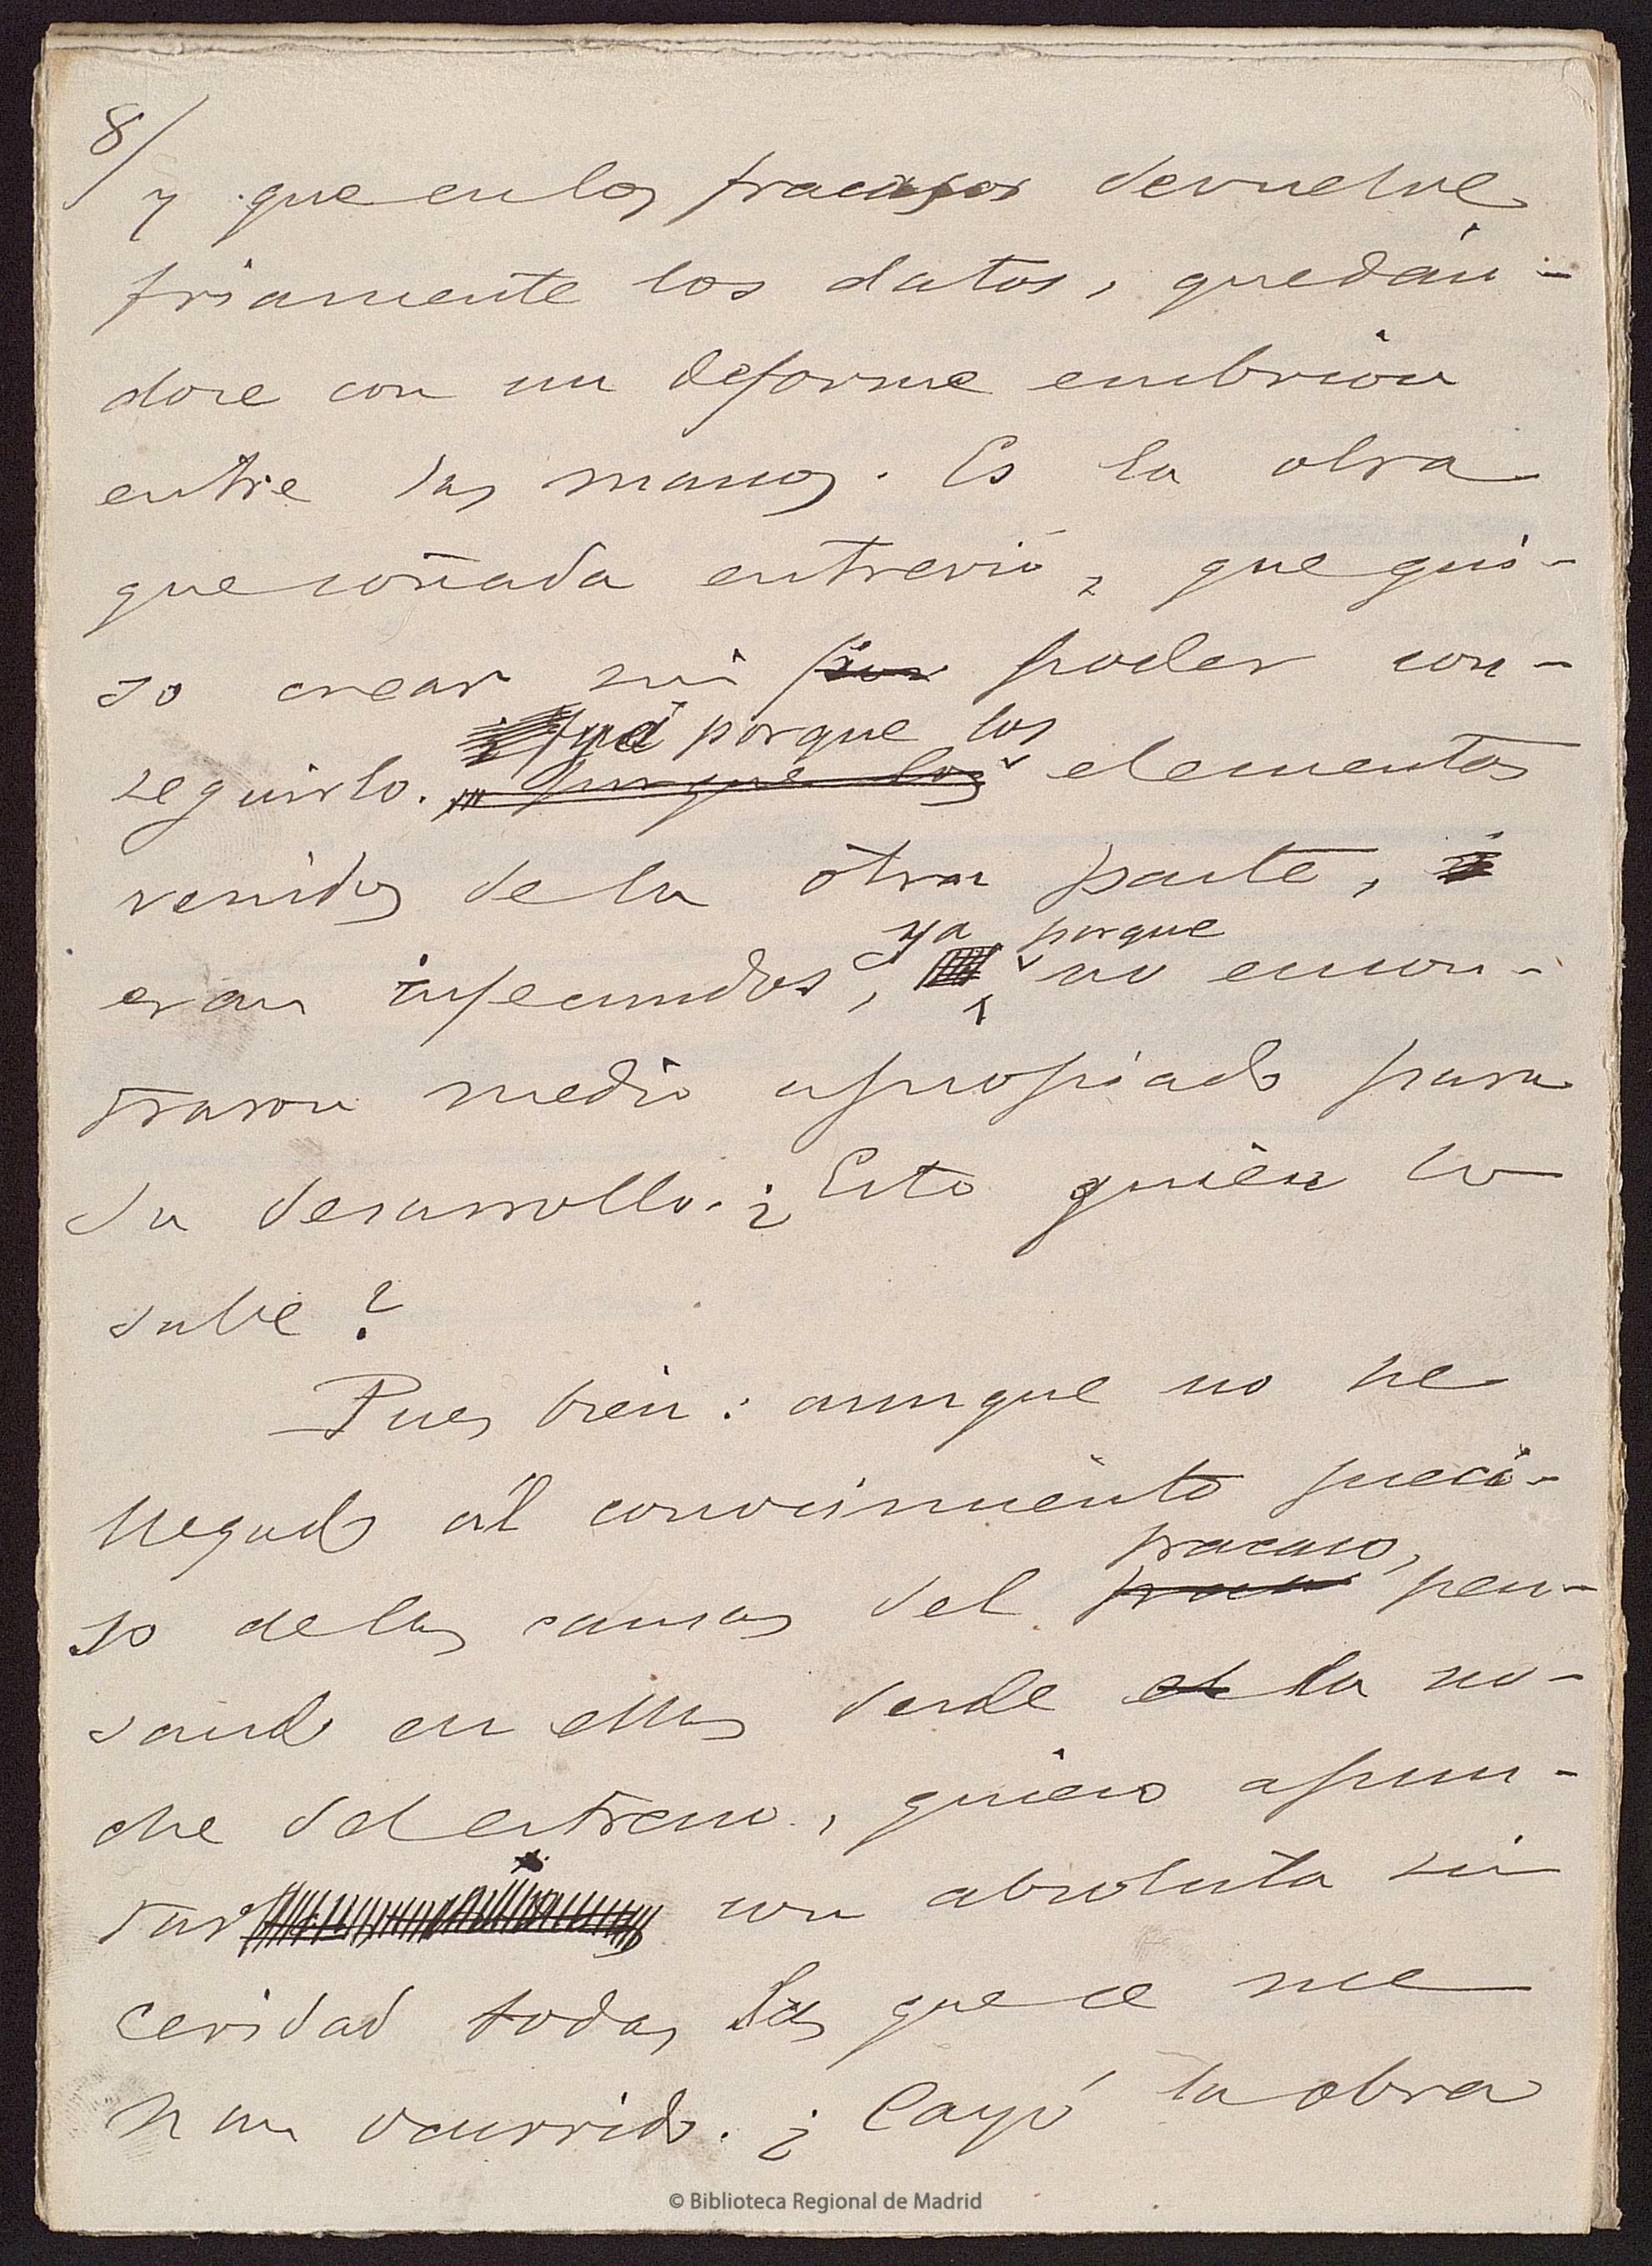 8/
y que en los fracasos devuelve
friamente los datos, quedán-
dose con un deforme embrión
entre las manos. Es la obra
que soñada entrevió, que qui-
so crear sin poder con-
seguirlo. ya porque los elementos
venidos de la otra parte,
eran infecundos, ya porque no encon-
traron medio apropiado para
su desarrollo. ¿Esto quién lo
sabe?
Pues bien: aunque no he
llegado al conocimiento preci-
so de las causas del fracaso, pen-
sando en ellas desde la no-
che del estreno, quiero apun-
tar con absoluta sin
ceridad todas las que se me
han ocurrido. ¿Cayó la obra
© Biblioteca Regional de Madrid